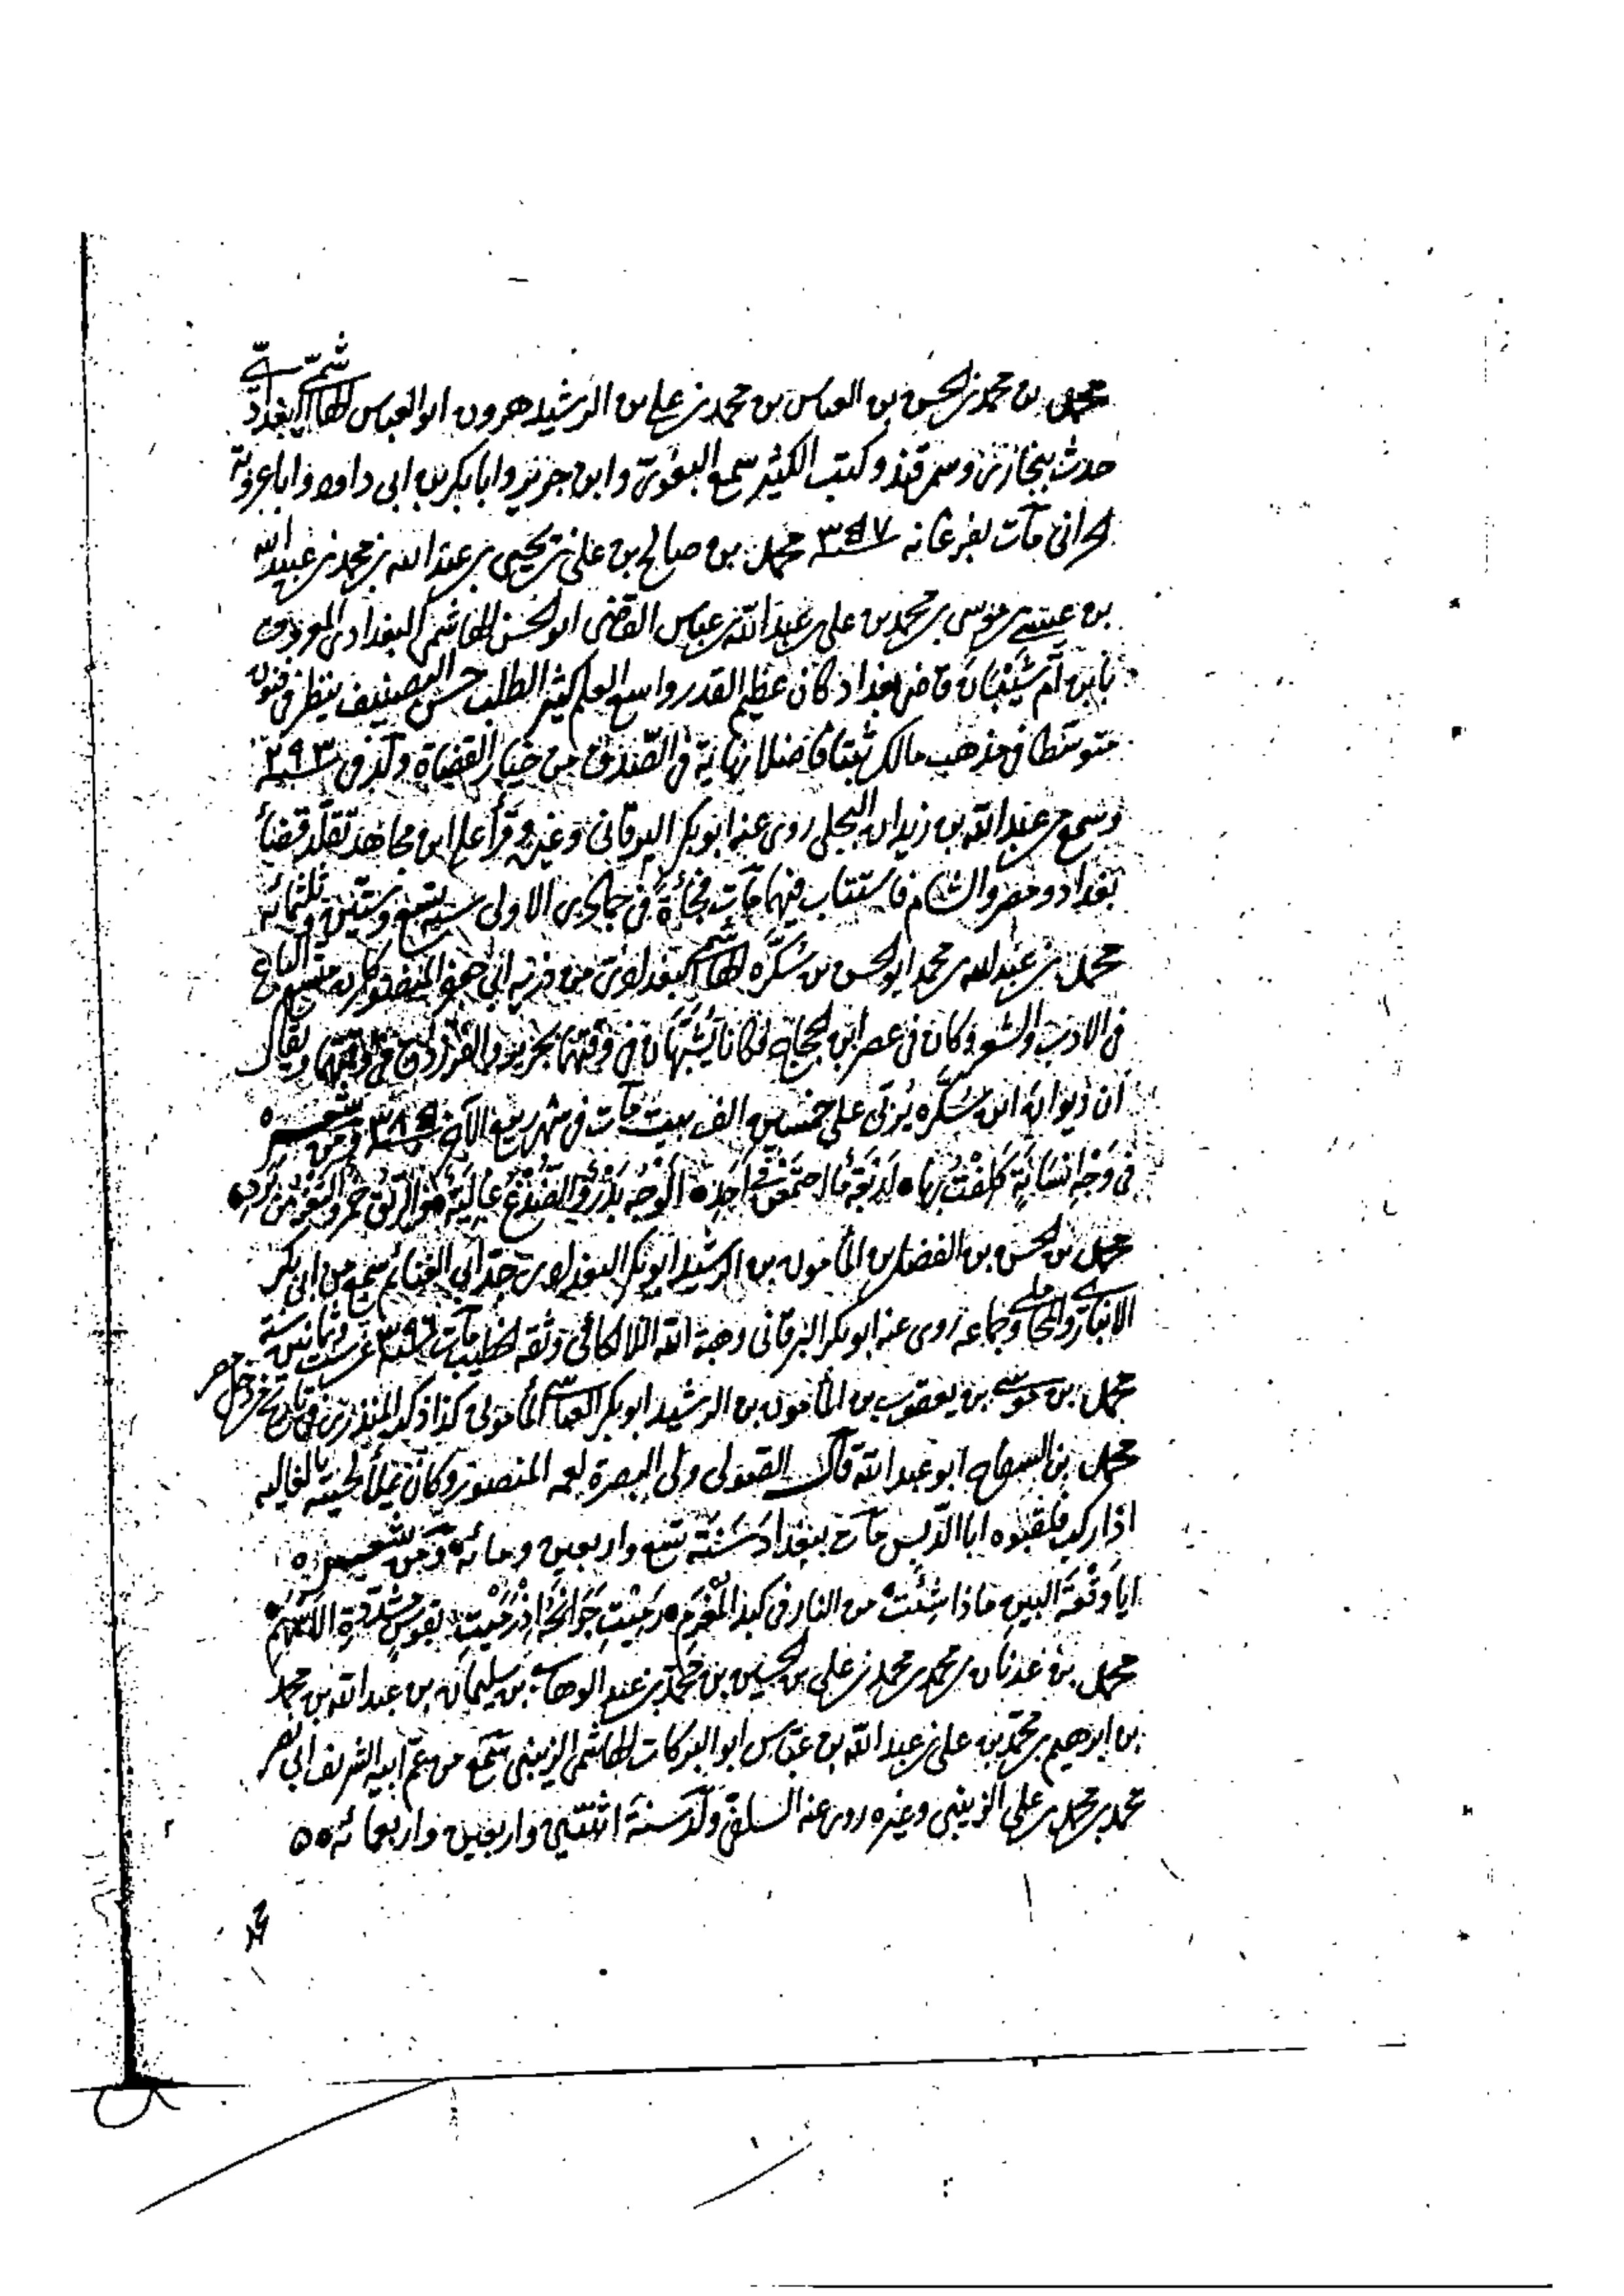 محمد بن محمد بن الحسن بن العباس بن محمد بن علي بن الرشيد هرون ابو العباس الهاشمي البغدادي
حدث ببخارى وسمرقند وكتب الكثير سمع البغوي وابن جرير وابا بكر بن ابي داود وابا عروبة
الحراني مات بفرغانه سنة ٣٤٧ محمد بن صالح بن علي بن يحيى بن عبد الله بن محمد بن عبيد الله
بن عيسى بن موسى بن محمد بن علي بن عبد الله بن عباس القاضي ابو الحسن الهاشمي البغدادي المعروف
بابن أم شيبان قاضي بغداد كان عظيم القدر واسع العلم كثير الطلب حسن التصنيف ينظر في فنون
متوسطا في مذهب مالك ثبتا فاضلا نهاية في الصدق من خيار القضاة ولد في سنة ٢٩٣
وسمع من عبد الله بن زيدان البجلي روى عنه ابو بكر البرقاني وغيره وقرأ على ابن مجاهد تقلد قضاء
بغداد ومصر والشام فاستناب فيها مات فجأة في جمادى الاولى سنة تسع وستين وثلثمائه
محمد بن عبد الله بن محمد ابو الحسن بن سكره الهاشمي البغدادي من ذرية ابي جعفر المنصور كان متسع الباع
في الادب والشعر وكان في عصر ابن الحجاج وكانا يشبهان في وقتهما بجرير والفرزدق في وقتهما ويقال
ان ديوان ابن سكره يربى على خمسين الف بيت مات في شهر ربيع الآخر سنة ٣٨٥ ومن شعره
في وجه انسانية كلفت بها ه اربعة ما اجتمعن في احد ه الوجه بدر والصدغ غالية ه والريق خمر والثغر من برد ه
محمد بن الحسن بن الفضل بن المأمون بن الرشيد ابو بكر البغدادي جد ابي الغنائم سمع من ابي بكر
الانباري والمحاملي وجماعه روى عنه ابو بكر البرقاني وهبة الله اللالكائي وثقه الخطيب مات سنة ٣٩٦ عن ست وثمانين سنة
محمد بن موسى بن يعقوب بن المأمون بن الرشيد ابو بكر العباسي المأموني كذا ذكر المنذري في تاريخ من دخل مصر
محمد بن السفاح ابو عبد الله قال الصولي ولي البصرة لعمه المنصور وكان يملأ لحيته بالغاليه
اذا ركب فلقبوه ابا الدبس مات ببغداد سنة تسع واربعين ومائه ومن شعره
ايا وقعة البين ماذا شئت من النار في كبد المغرم ه رميت جوانحه اذ رميت بقوس مشددة الاسهم
محمد بن عدنان بن محمد بن محمد بن علي بن الحسين بن محمد بن عبد الوهاب بن سليمان بن عبد الله بن محمد
بن ابرهيم بن محمد بن علي بن عبد الله بن عباس ابو البركات الهاشمي الزينبي سمع من عم ابيه الشريف ابي نصر
محمد بن محمد بن علي الزينبي وغيره روى عنه السلفي ولد سنة اثنتين واربعين واربعمائه ه ه
محمد